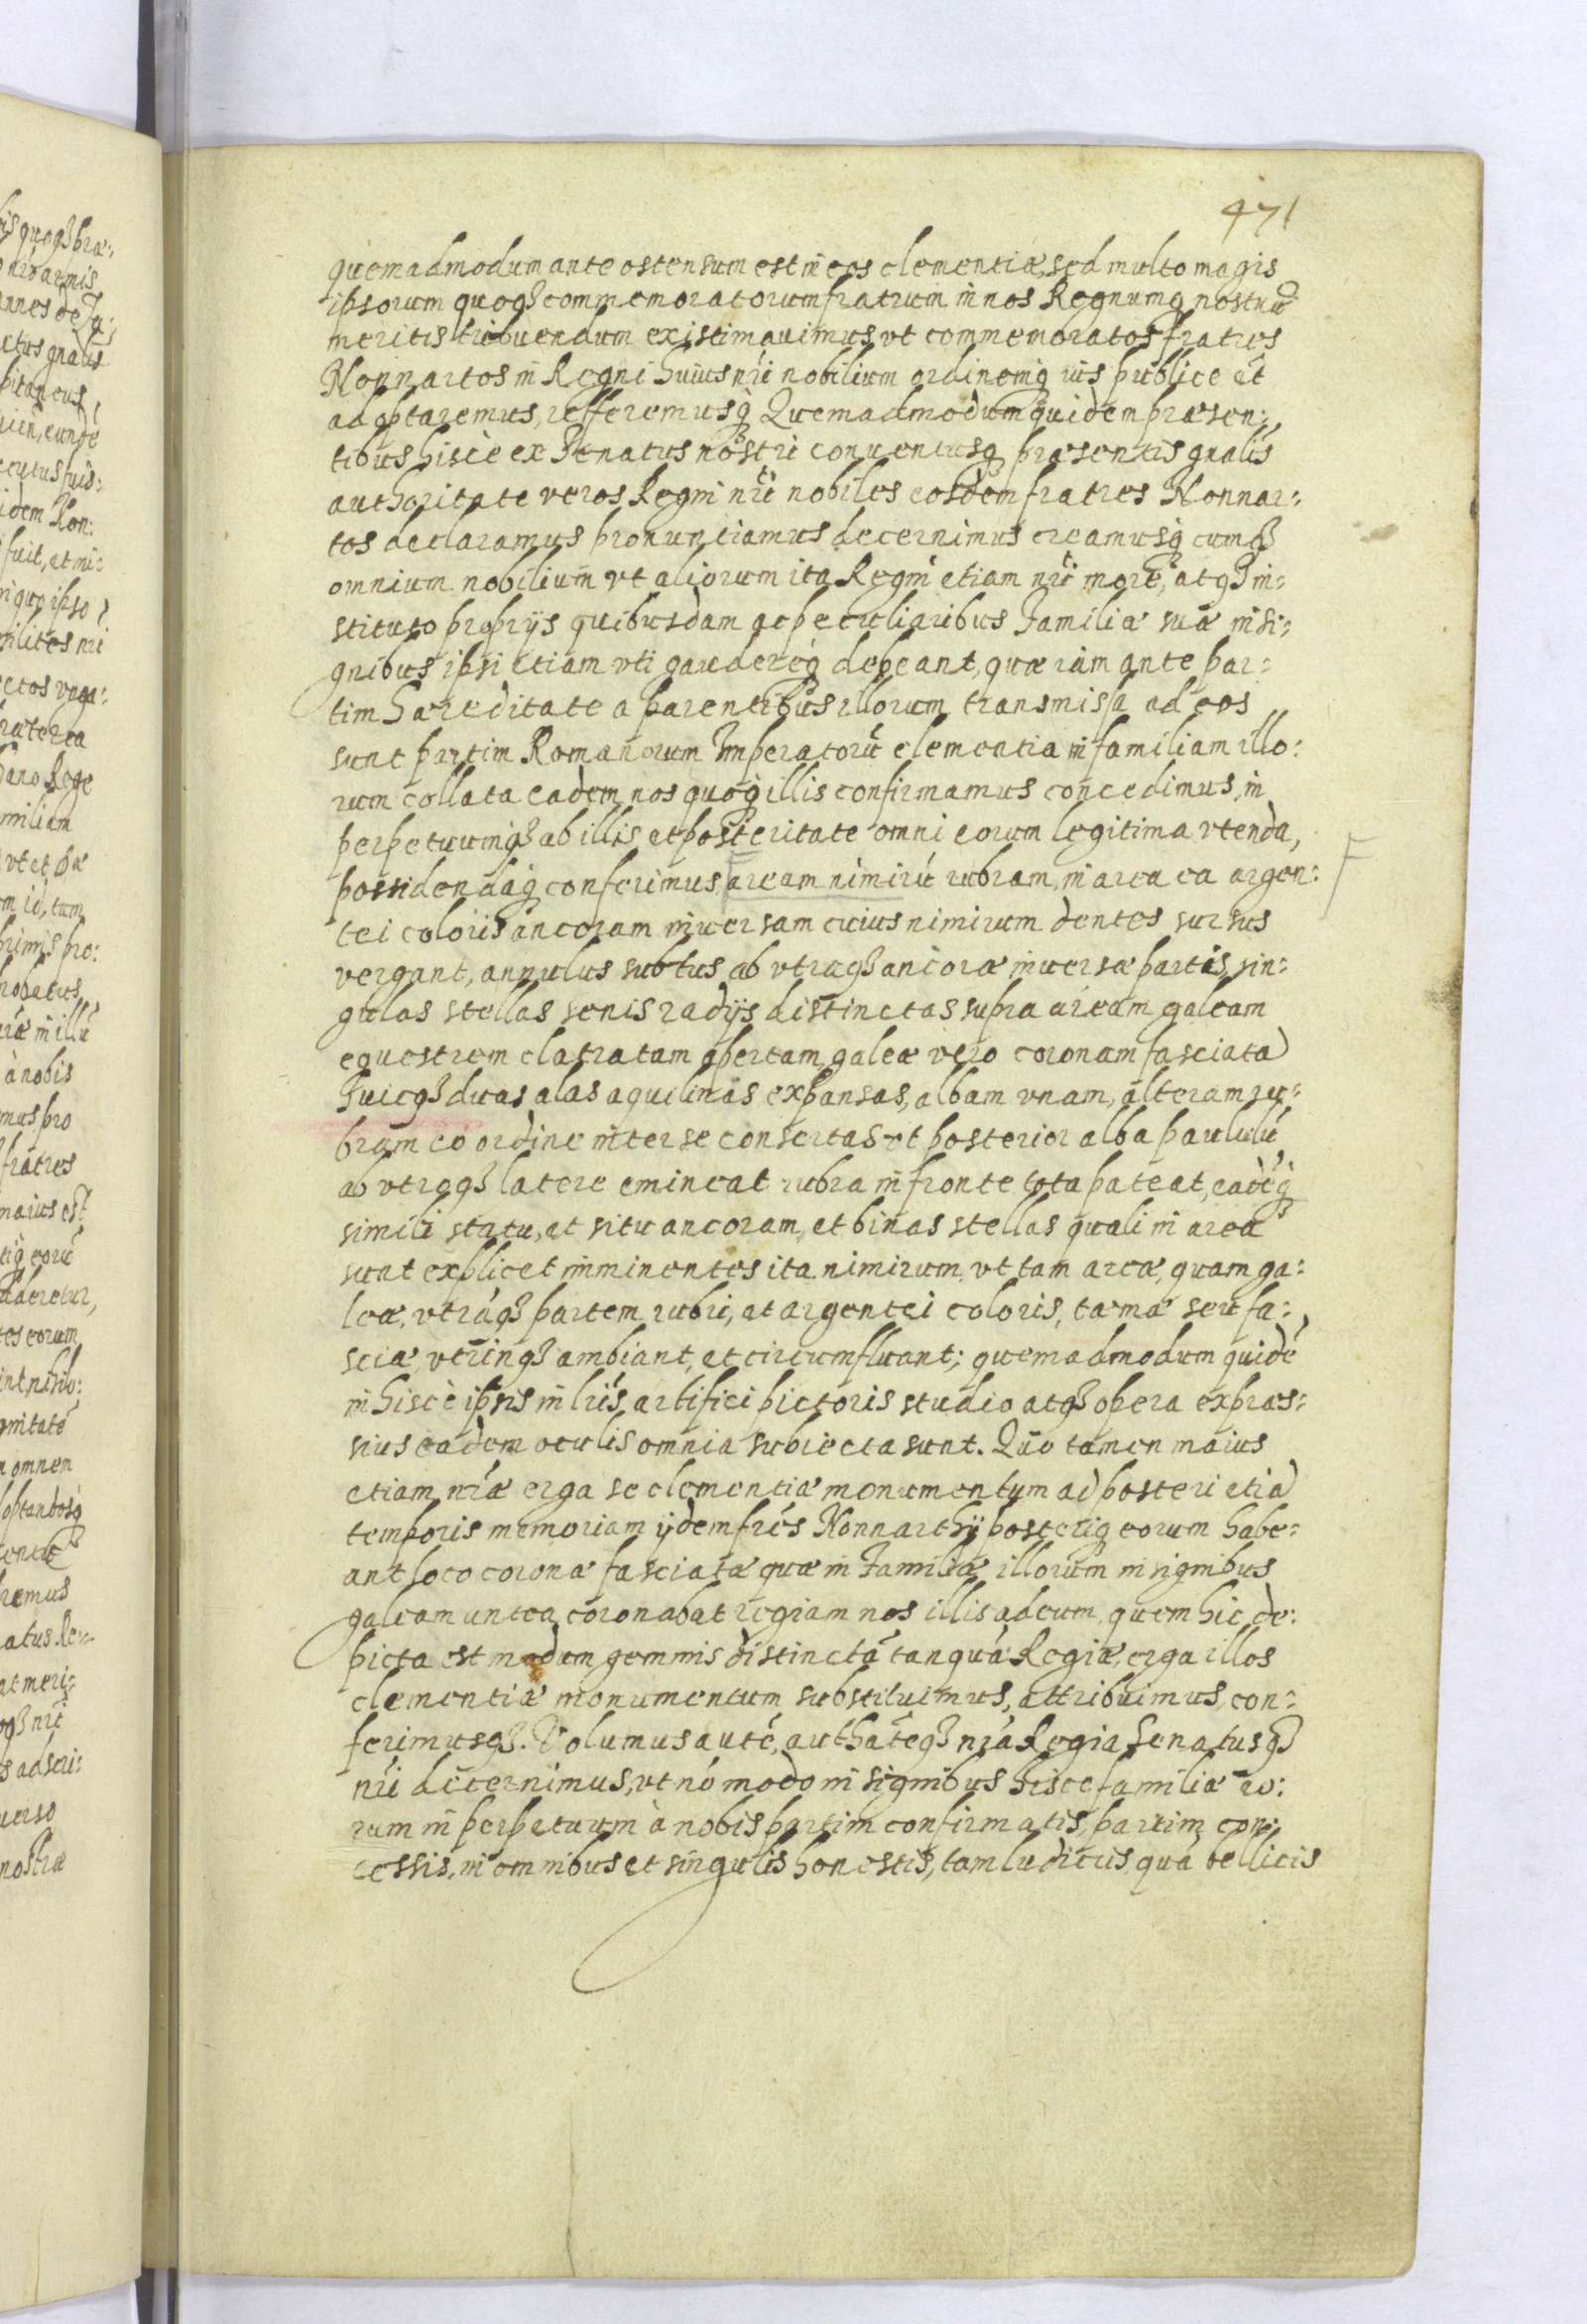 471
quemadmodum ante ostensum est in eos clementiæ, sed multo magis
ipsorum quoqȝ commemoratorum fratrum in nos Regnumq nostrũ
meritis tribuendum existimauimus, vt commemoratos fratres
Nonnartos in Regni huius nri nobilium ordinemq publice et
adoptaremus, refferemusq̀ Quemadmodum quidem præsen:
tibus hisce ex Senatus nostri conuentusq præsentis gnalis
authoritate veros Regni nri nobiles eosdem fratres Nonnar:
tos declaramus pronunciamus decernimus creamusq cumqȝ
omnium nobilium vt aliorum ita Regni etiam nri more, atqȝ in:
stituto proprijs quibusdam ac peculiaribus Familiæ suæ insi:
gnibus ipsi etiam vti gaudereq debeant, quæ iam ante par:
tim hæreditate a parentibus illorum transmissa ad eos
sunt partim Romanorum Imperatorũ clementia in familiam illo:
rum collata eadem nos quoq illis confirmamus concedimus, in
perpetuumqȝ ab illis et posteritate omni eorum legitima vtenda,
possidendaq conferimus, aream nimirũ rubram, in area ea argen: F
tei coloris ancoram inuersam cuius nimirum dentes sursus
vergant, annulus subtus, ab vtraqȝ ancoræ inuersæ partis, sin:
gulas stellas senis radijs distinctas supra aream galeam
equestrem clatratam apertam, galeæ vero coronam fasciatã
huicqȝ duas alas aquilinas expansas, albam vnam, alteram ru:
bram eo ordine inter se consertas vt posterior alba paululũ
ab vtroqȝ latere emineat rubra in fronte tota pateat, eadẽq
simili statu, at situ ancoram, et binas stellas quali in area
sunt explicet imminentes ita nimirum, vt tam areæ, quam ga:
leæ, vtraqȝ partem rubri, at argentei coloris, tæmæ seu fa:
sciæ, vtrinqȝ ambiant, et circumfluant; quemadmodum quidẽ
in hisce ipsis in lris artifici pictoris studio atqȝ opera expres:
sius eadem oculis omnia subiecta sunt. Quo tamen maius
etiam nræ erga se clementiæ monumentum ad posteri etiã
temporis memoriam ijdem frẽs Nonnarthij posteriq eorum habe:
ant loco coronæ fasciatæ quæ in Familiæ illorum insignibus
galeam antea coronabat regiam nos illis ad eum, quem hic de:
picta est modum gemmis distinctã tanquã Regiæ, erga illos
clementiæ monumentum substituimus, attribuimus, con:
ferimusqȝ. Volumus autẽ, authãteqȝ nrã Regia Senatusqȝ
nri decernimus, vt nõ modo insignibus hisce familiæ eo:
rum in perpetuum à nobis partim confirmatis, partim con:
cessis, in omnibus et singulis honestis, tam ludicris, quã bellicis